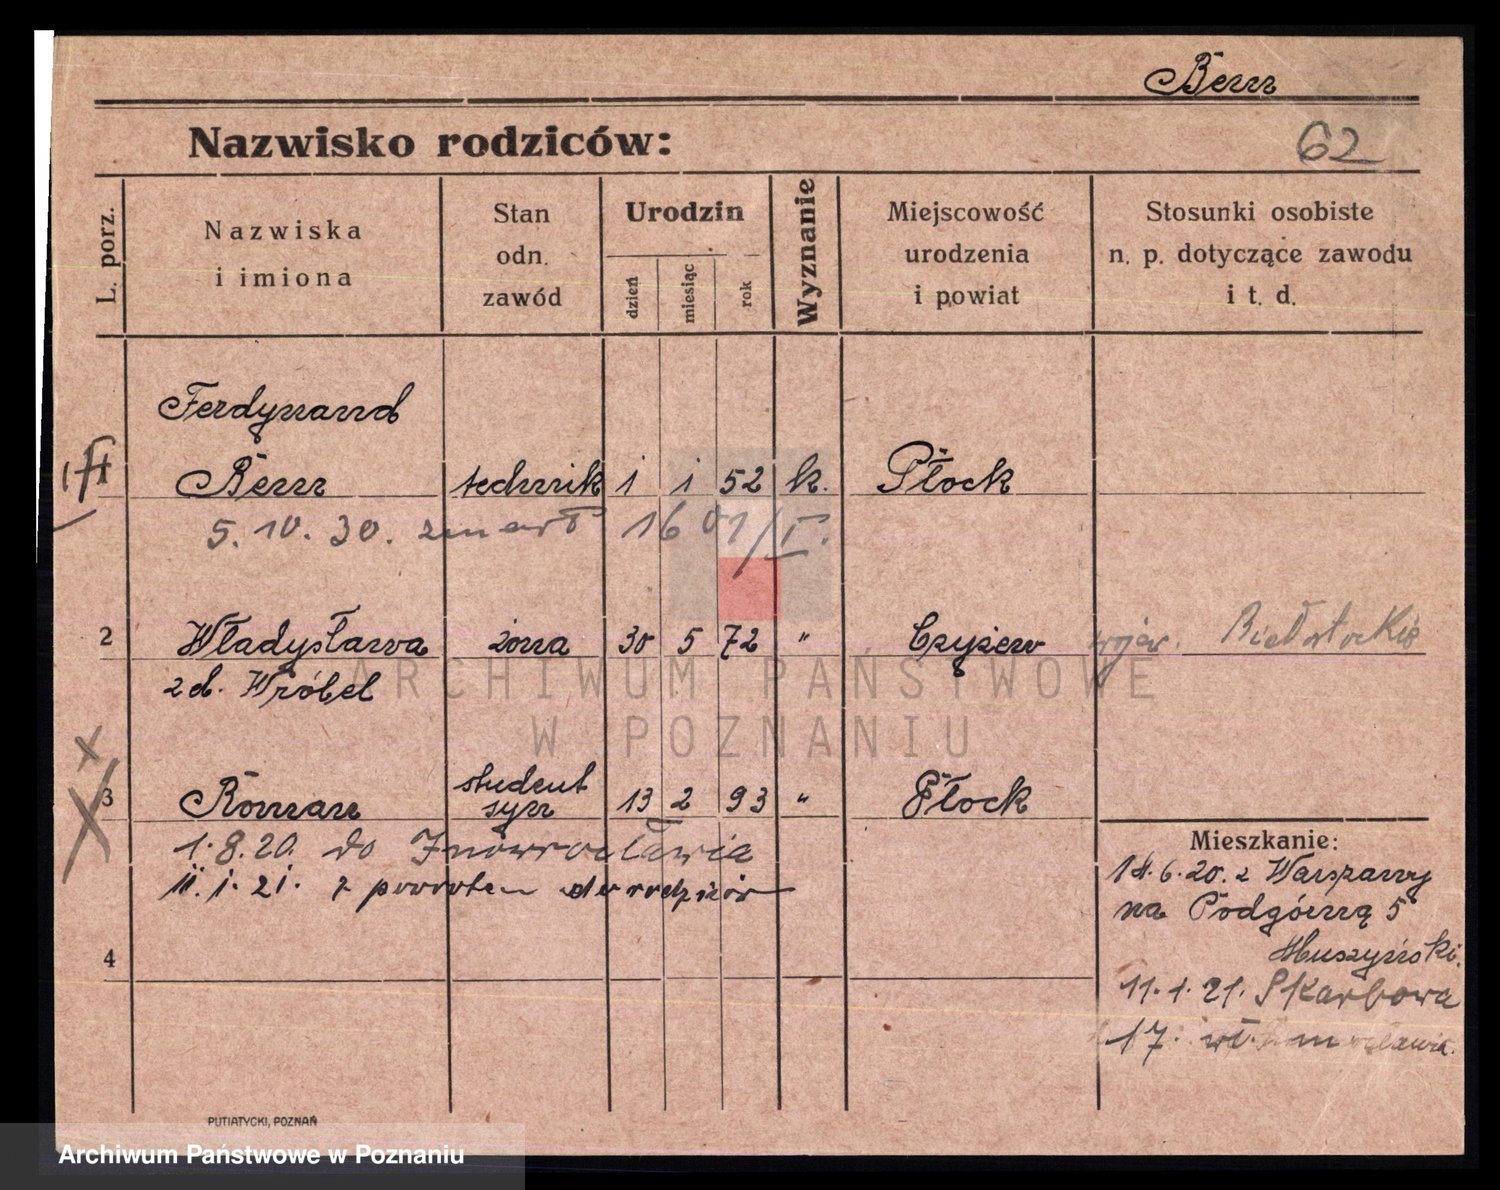 Berr
Nazwisko rodziców:
62
L. porz.
Nazwiska
i imiona
Stan
odn.
zawód
Urodzin
dzień
miesiąc
rok
Wyznanie
Miejscowość
urodzenia
i powiat
Stosunki osobiste
n. p. dotyczące zawodu
i t. d.
Ferdynand
1 Berr technik 1 1 52 k. Płock
5. 10. 30. zmarł 1601/I.
2 Władysława żona 30 5 72 " Czyżew wojew. Białostockie
zd. Wróbel
student
3 Roman syn 13 2 93 " Płock
1.8.20. do Inowrocławia
11.1.21. z powrotem do rodziców
4
Mieszkanie:
14.6.20. z Warszawy
na Podgórną 5
Muszyński.
11.1.21. Skarbowa
17.
ARCHIWUM PAŃSTWOWE
W POZNANIU
PUTIATYCKI, POZNAŃ
Archiwum Państwowe w Poznaniu